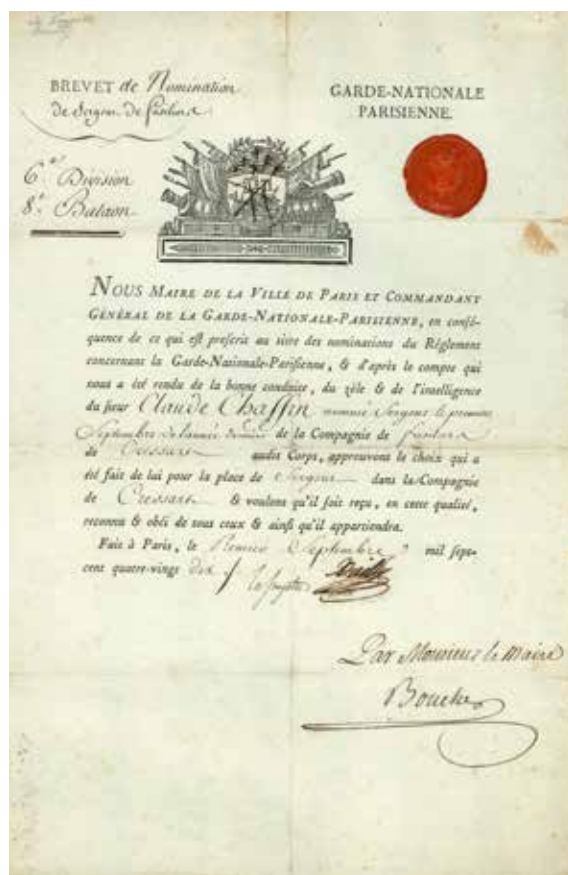 BREVET de Nomination
de Sergent de fusiliers
GARDE-NATIONALE
PARISIENNE.
6.e Division
8.e Bataon
NOUS MAIRE DE LA VILLE DE PARIS ET COMMANDANT
GÉNÉRAL DE LA GARDE-NATIONALE-PARISIENNE, en consé-
quence de ce qui est prescrit au titre des nominations du Réglement
concernant la Garde-Nationale-Parisienne, & d'après le compte qui
nous a été rendu de la bonne conduite, du zèle & de l'intelligence
du sieur Claude Chassin nommé Sergent le premier
Septembre de l'année dernière de la Compagnie de
de Cressart audit Corps, approuvons le choix qui a
été fait de lui pour la place de Sergent dans la Compagnie
de Cressart & voulons qu'il soit reçu, en cette qualité,
reconnu & obéi de tous ceux & ainsi qu'il appartiendra.
Fait à Paris, le Premier Septembre mil sept-
cent quatre-vingt dix
Lafayette Bailly
Par Monsieur le Maire
Boucher